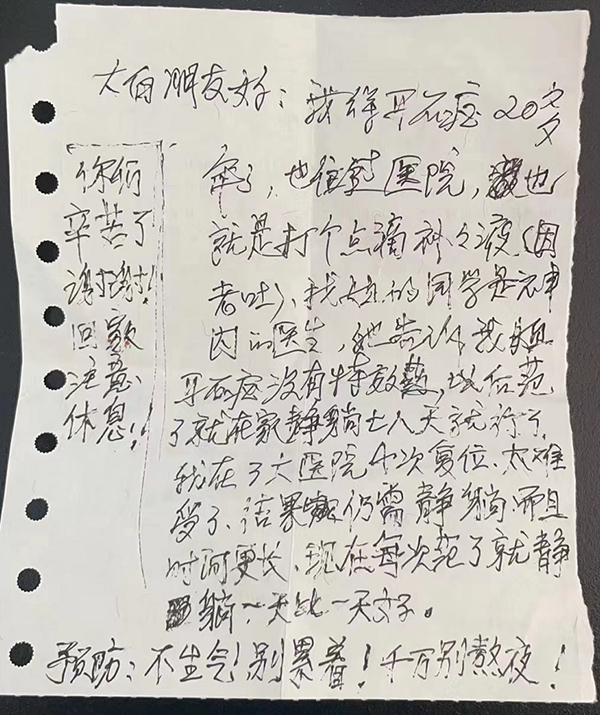 大白朋友好：我得耳石症20多
年了，也住过医院，也
就是打个点滴补个液（因
者吐）、我姐的同学是神
内的医生，她告诉我姐
耳石症没有特效药，以后范
了就在家静躺七八天就行了
我在了大医院做次复位、太难
受了、结果仍需静躺、而且
时间更长、现在每次范了就静
躺、一天比一天好。
预防：不生气！别累着！千万别熬夜！
你们
辛苦了
谢谢！
回家
注意
休息！！